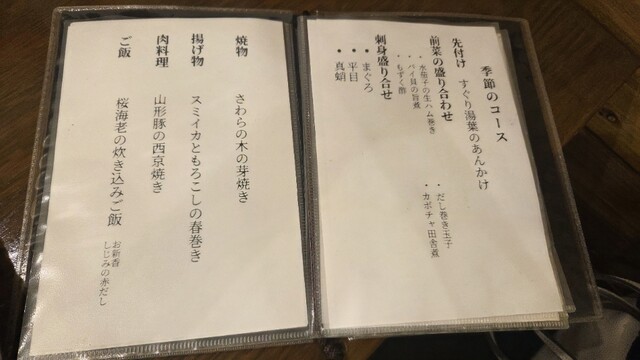 季節のコース
先付け すぐり湯葉のあんかけ
前菜の盛り合わせ
・水茄子の生ハム巻き
・バイ貝の旨煮
・もずく酢
・だし巻き玉子
・カボチャ田舎煮
刺身盛り合せ
・まぐろ
・平目
・真蛸
焼物 さわらの木の芽焼き
揚げ物 スミイカともろこしの春巻き
肉料理 山形豚の西京焼き
ご飯 桜海老の炊き込みご飯
お新香
しじみの赤だし